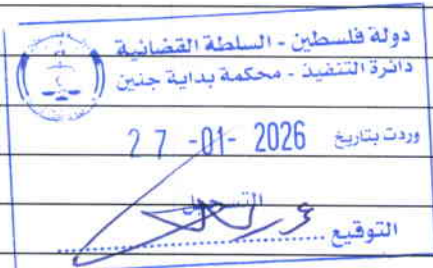 دولة فلسطين - السلطة القضائية
دائرة التنفيذ - محكمة بداية جنين
وردت بتاريخ 27 -01- 2026
التسجيل
التوقيع